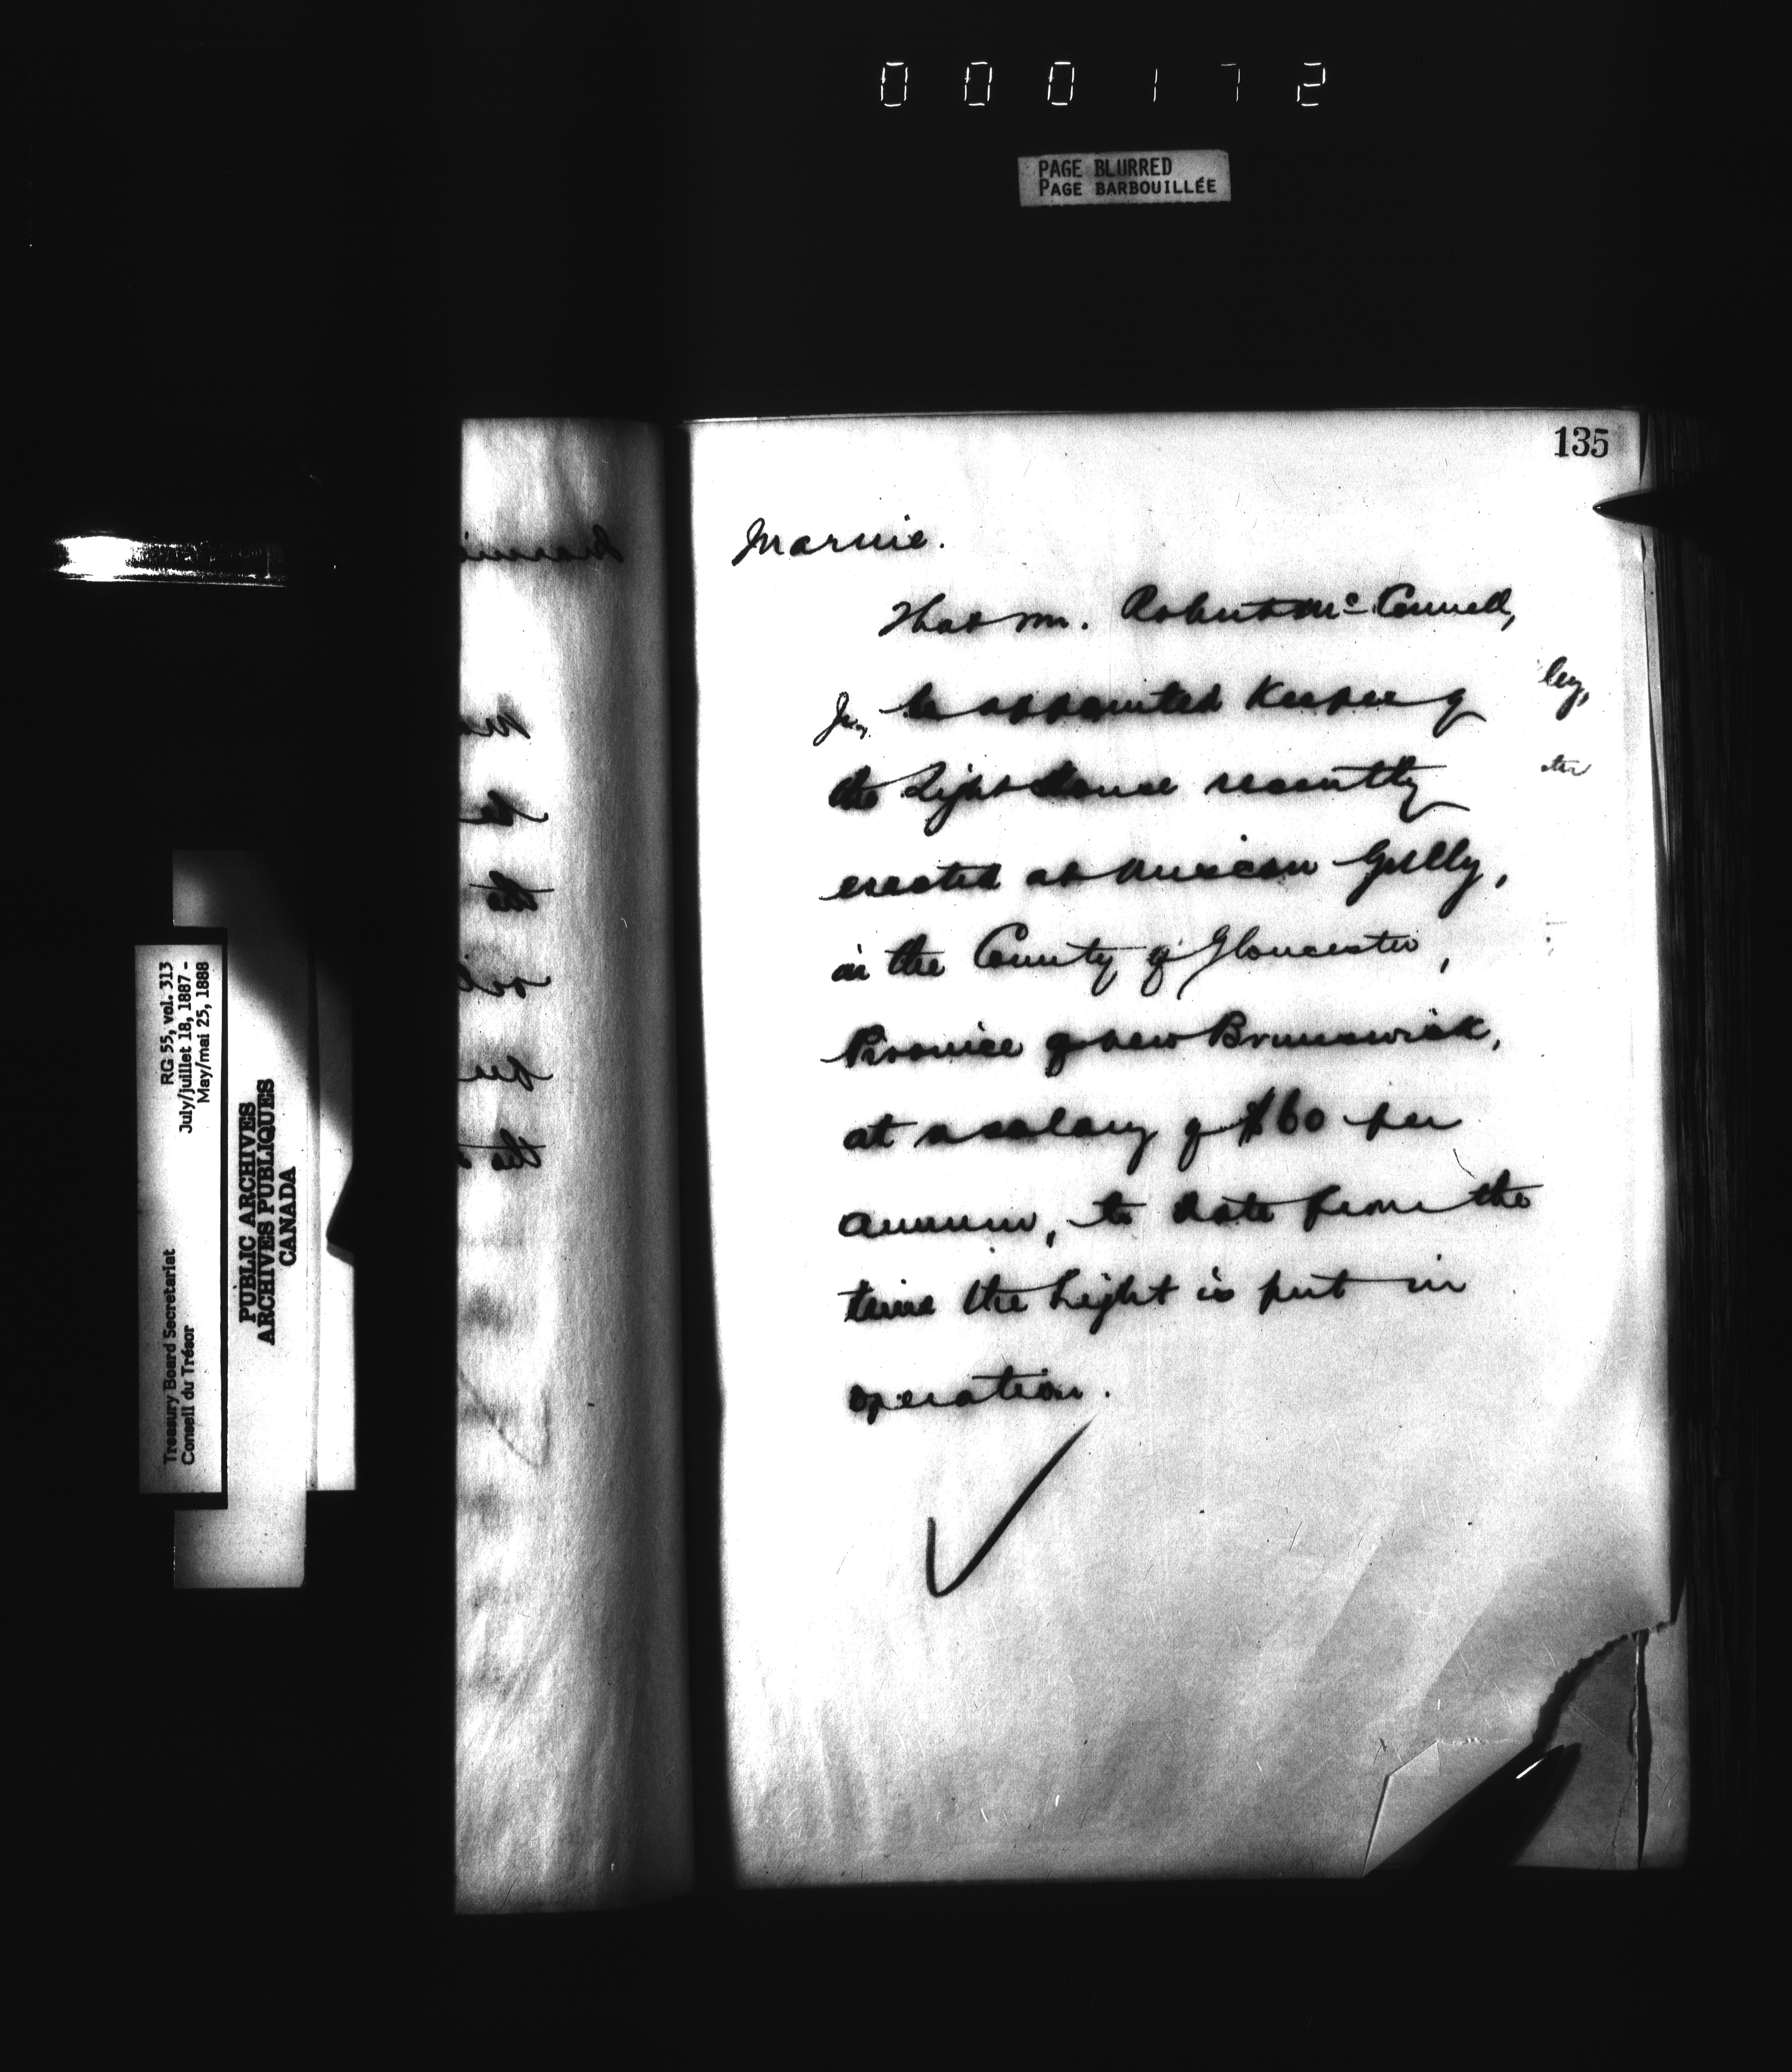 000172
PAGE BLURRED
PAGE BARBOUILLÉE
135
Marine.
That Mr. Robert McConnell,
Jr., be appointed Keeper of
the Light House recently
erected at Miscou Gully,
in the County of Gloucester,
Province of New Brunswick,
at a salary of $60 per
annum, to date from the
time the Light is put in
operation.
ley,
ter
RG 55, vol. 313
July/juillet 18, 1887 -
May/mai 25, 1888
Treasury Board Secretariat
Conseil du Trésor
PUBLIC ARCHIVES
ARCHIVES PUBLIQUES
CANADA